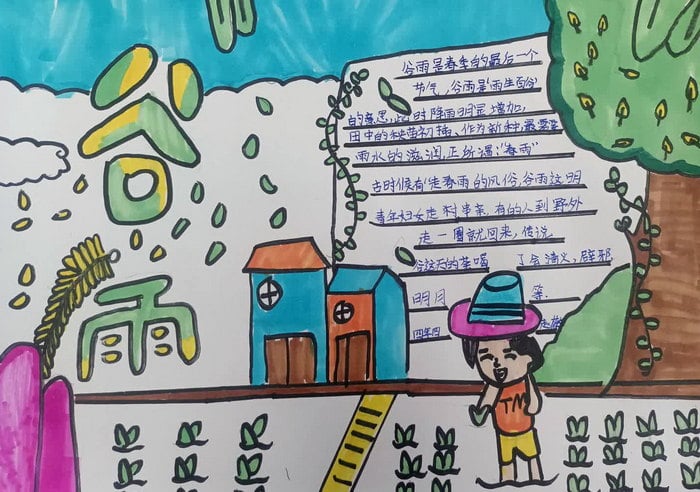 谷雨
谷雨是春季的最后一个
节气,谷雨是"雨生百谷"
的意思,此时降雨明显增加,
田中的秧苗初插、作为新种最需要
雨水的滋润,正所谓:"春雨"
古时候有"走春雨"的风俗,谷雨这明
青年妇女走村串亲,有的人到野外
走一圈就回来,传说
谷这天的茶喝 了会清火,辟邪
明月 等.
四年四
TM